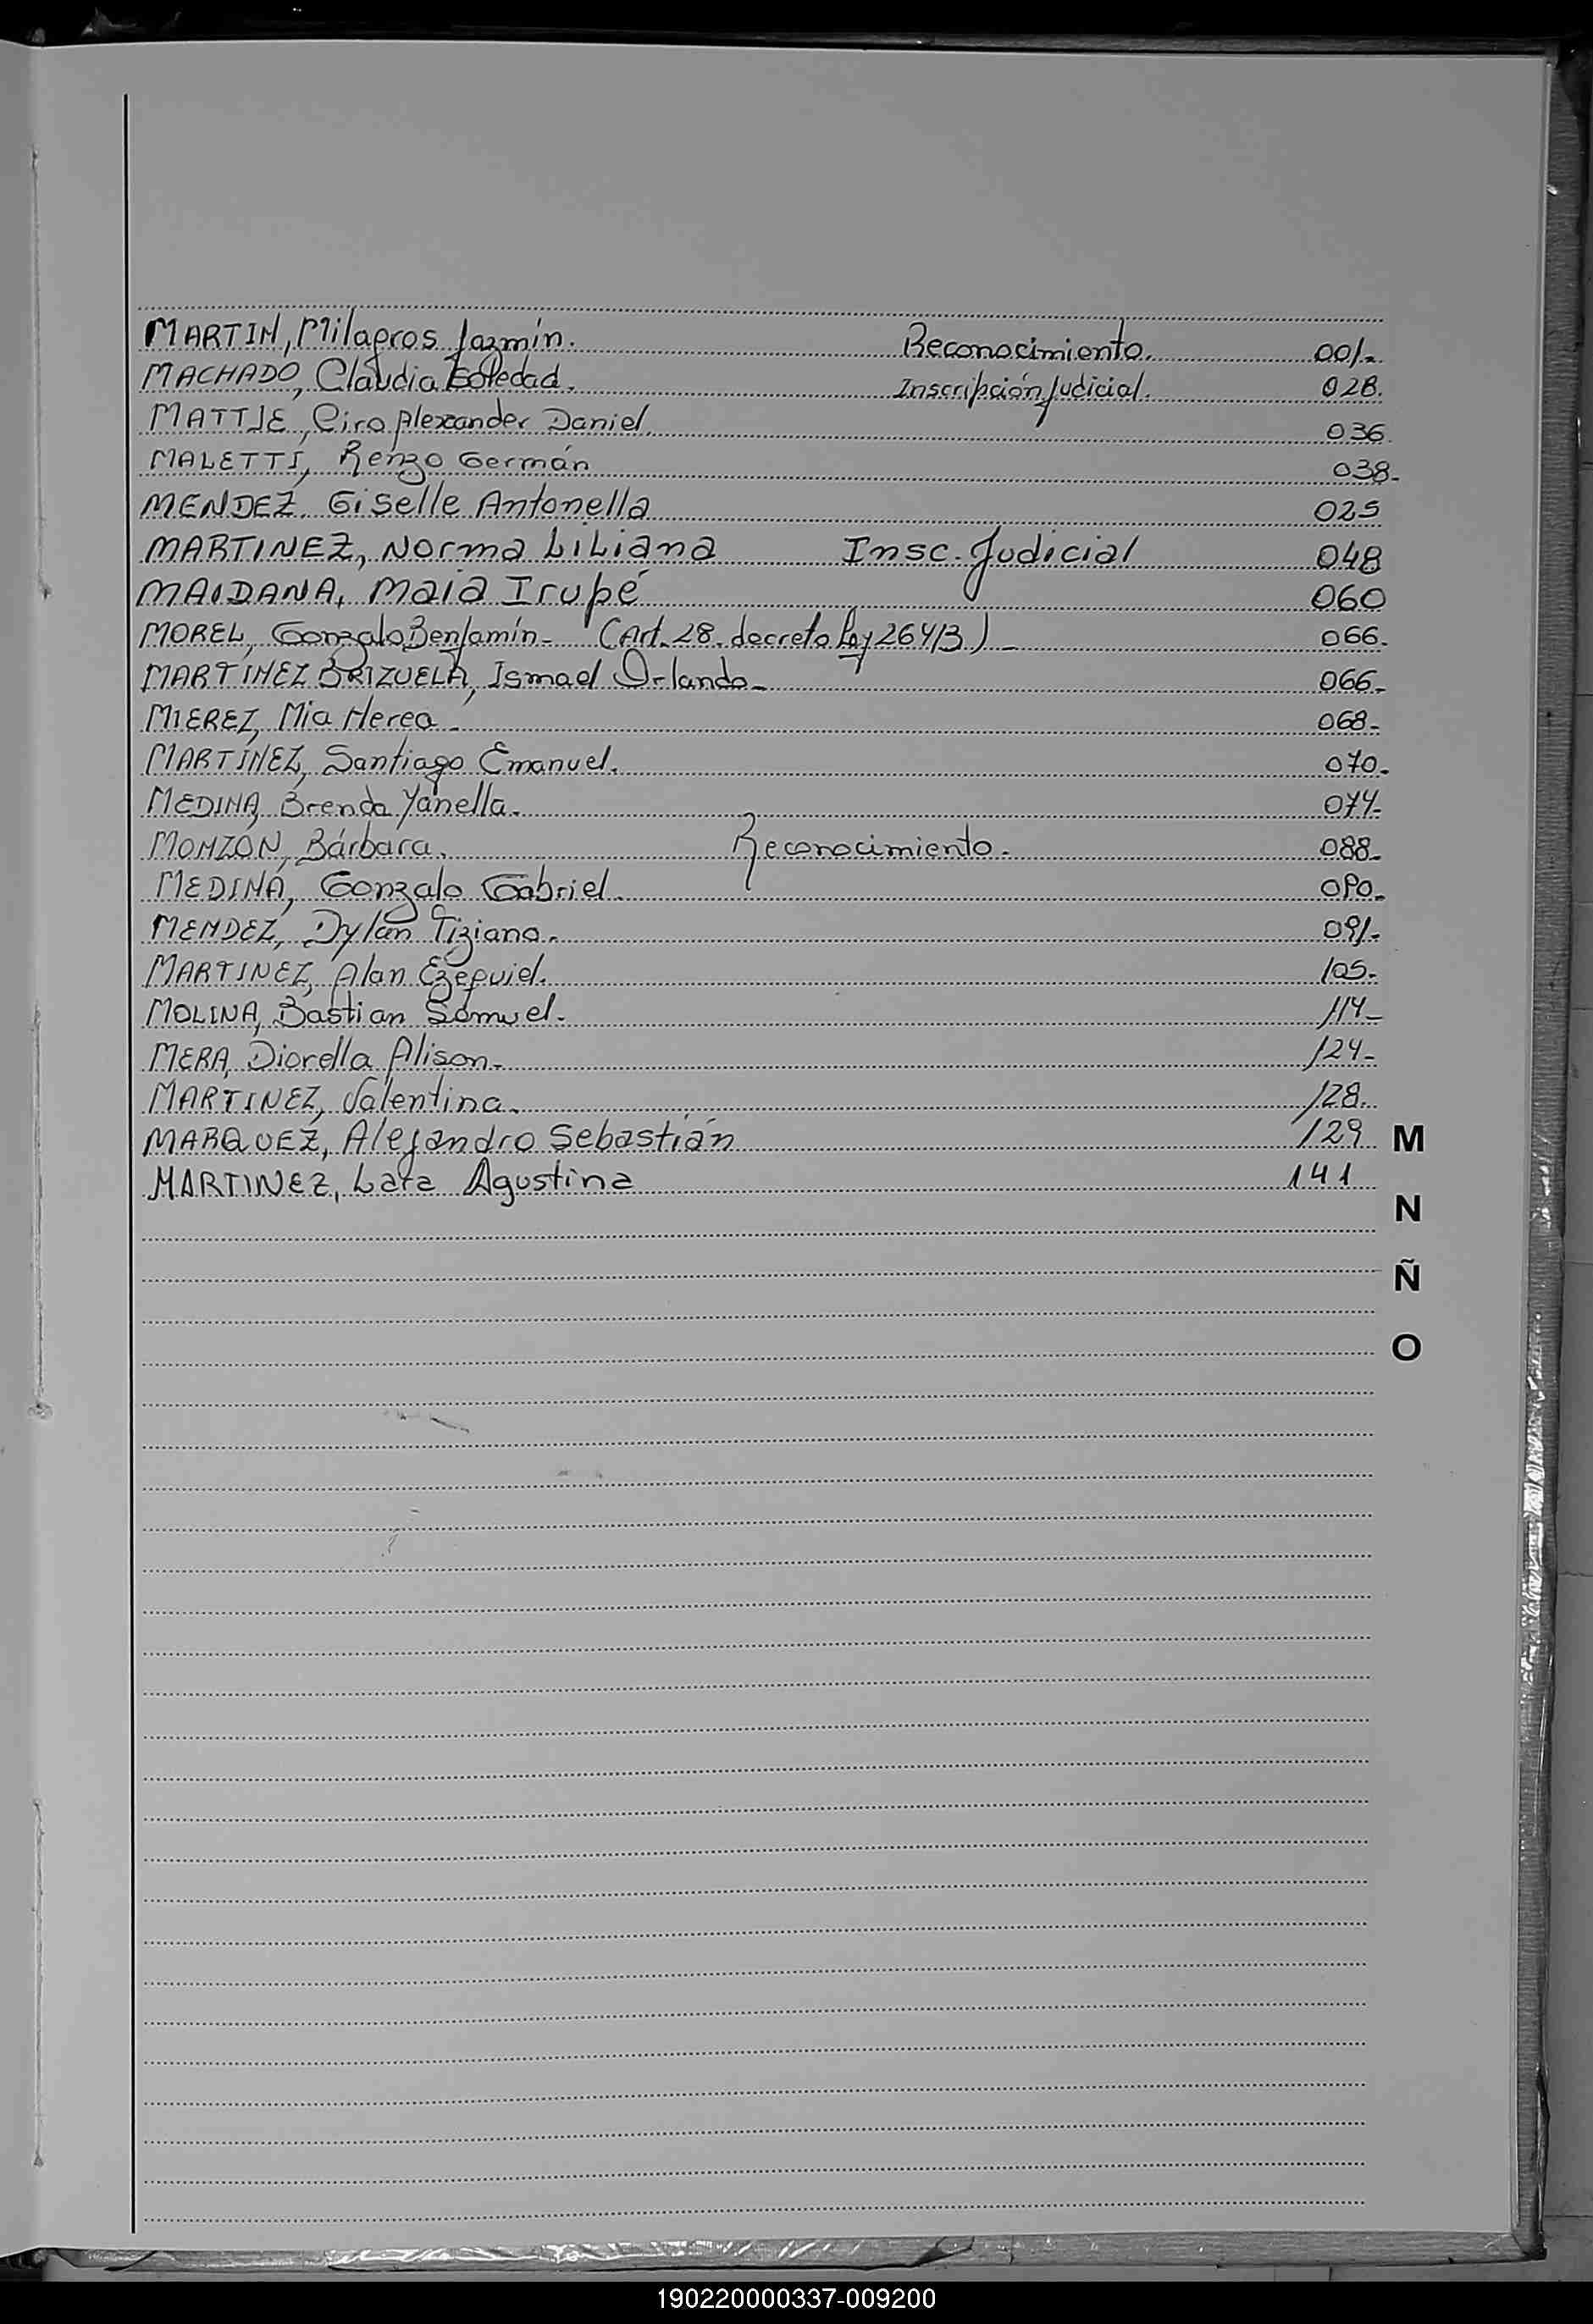 MARTIN, Milagros Jazmín. Reconocimiento. 001.-
MACHADO, Claudia Soledad. Inscripción Judicial. 028.
MATTJE, Ciro Alexander Daniel. 036.
MALETTI, Renzo Germán 038-
MENDEZ, Giselle Antonella 025
MARTINEZ, Norma Liliana Insc. Judicial 048
MAIDANA, Maia Irupé 060
MOREL, Gonzalo Benjamín- (Art. 28. decreto Ley 26413)- 066-
MARTÍNEZ BRIZUELA, Ismael Orlando- 066-
MIEREZ, Mia Nerea- 068-
MARTÍNEZ, Santiago Emanuel. 070-
MEDINA, Brenda Yanella. 074-
MONZÓN, Bárbara. Reconocimiento. 088-
MEDINA, Gonzalo Gabriel. 090-
MENDEZ, Dylan Tiziano. 091-
MARTINEZ, Alan Ezequiel. 105-
MOLINA, Bastian Samuel. 114-
MERA, Diorella Alison- 124-
MARTINEZ, Valentina. 128.
MARQUEZ, Alejandro Sebastián 129
M
MARTINEZ, Lara Agustina 141
N
Ñ
O
190220000337-009200